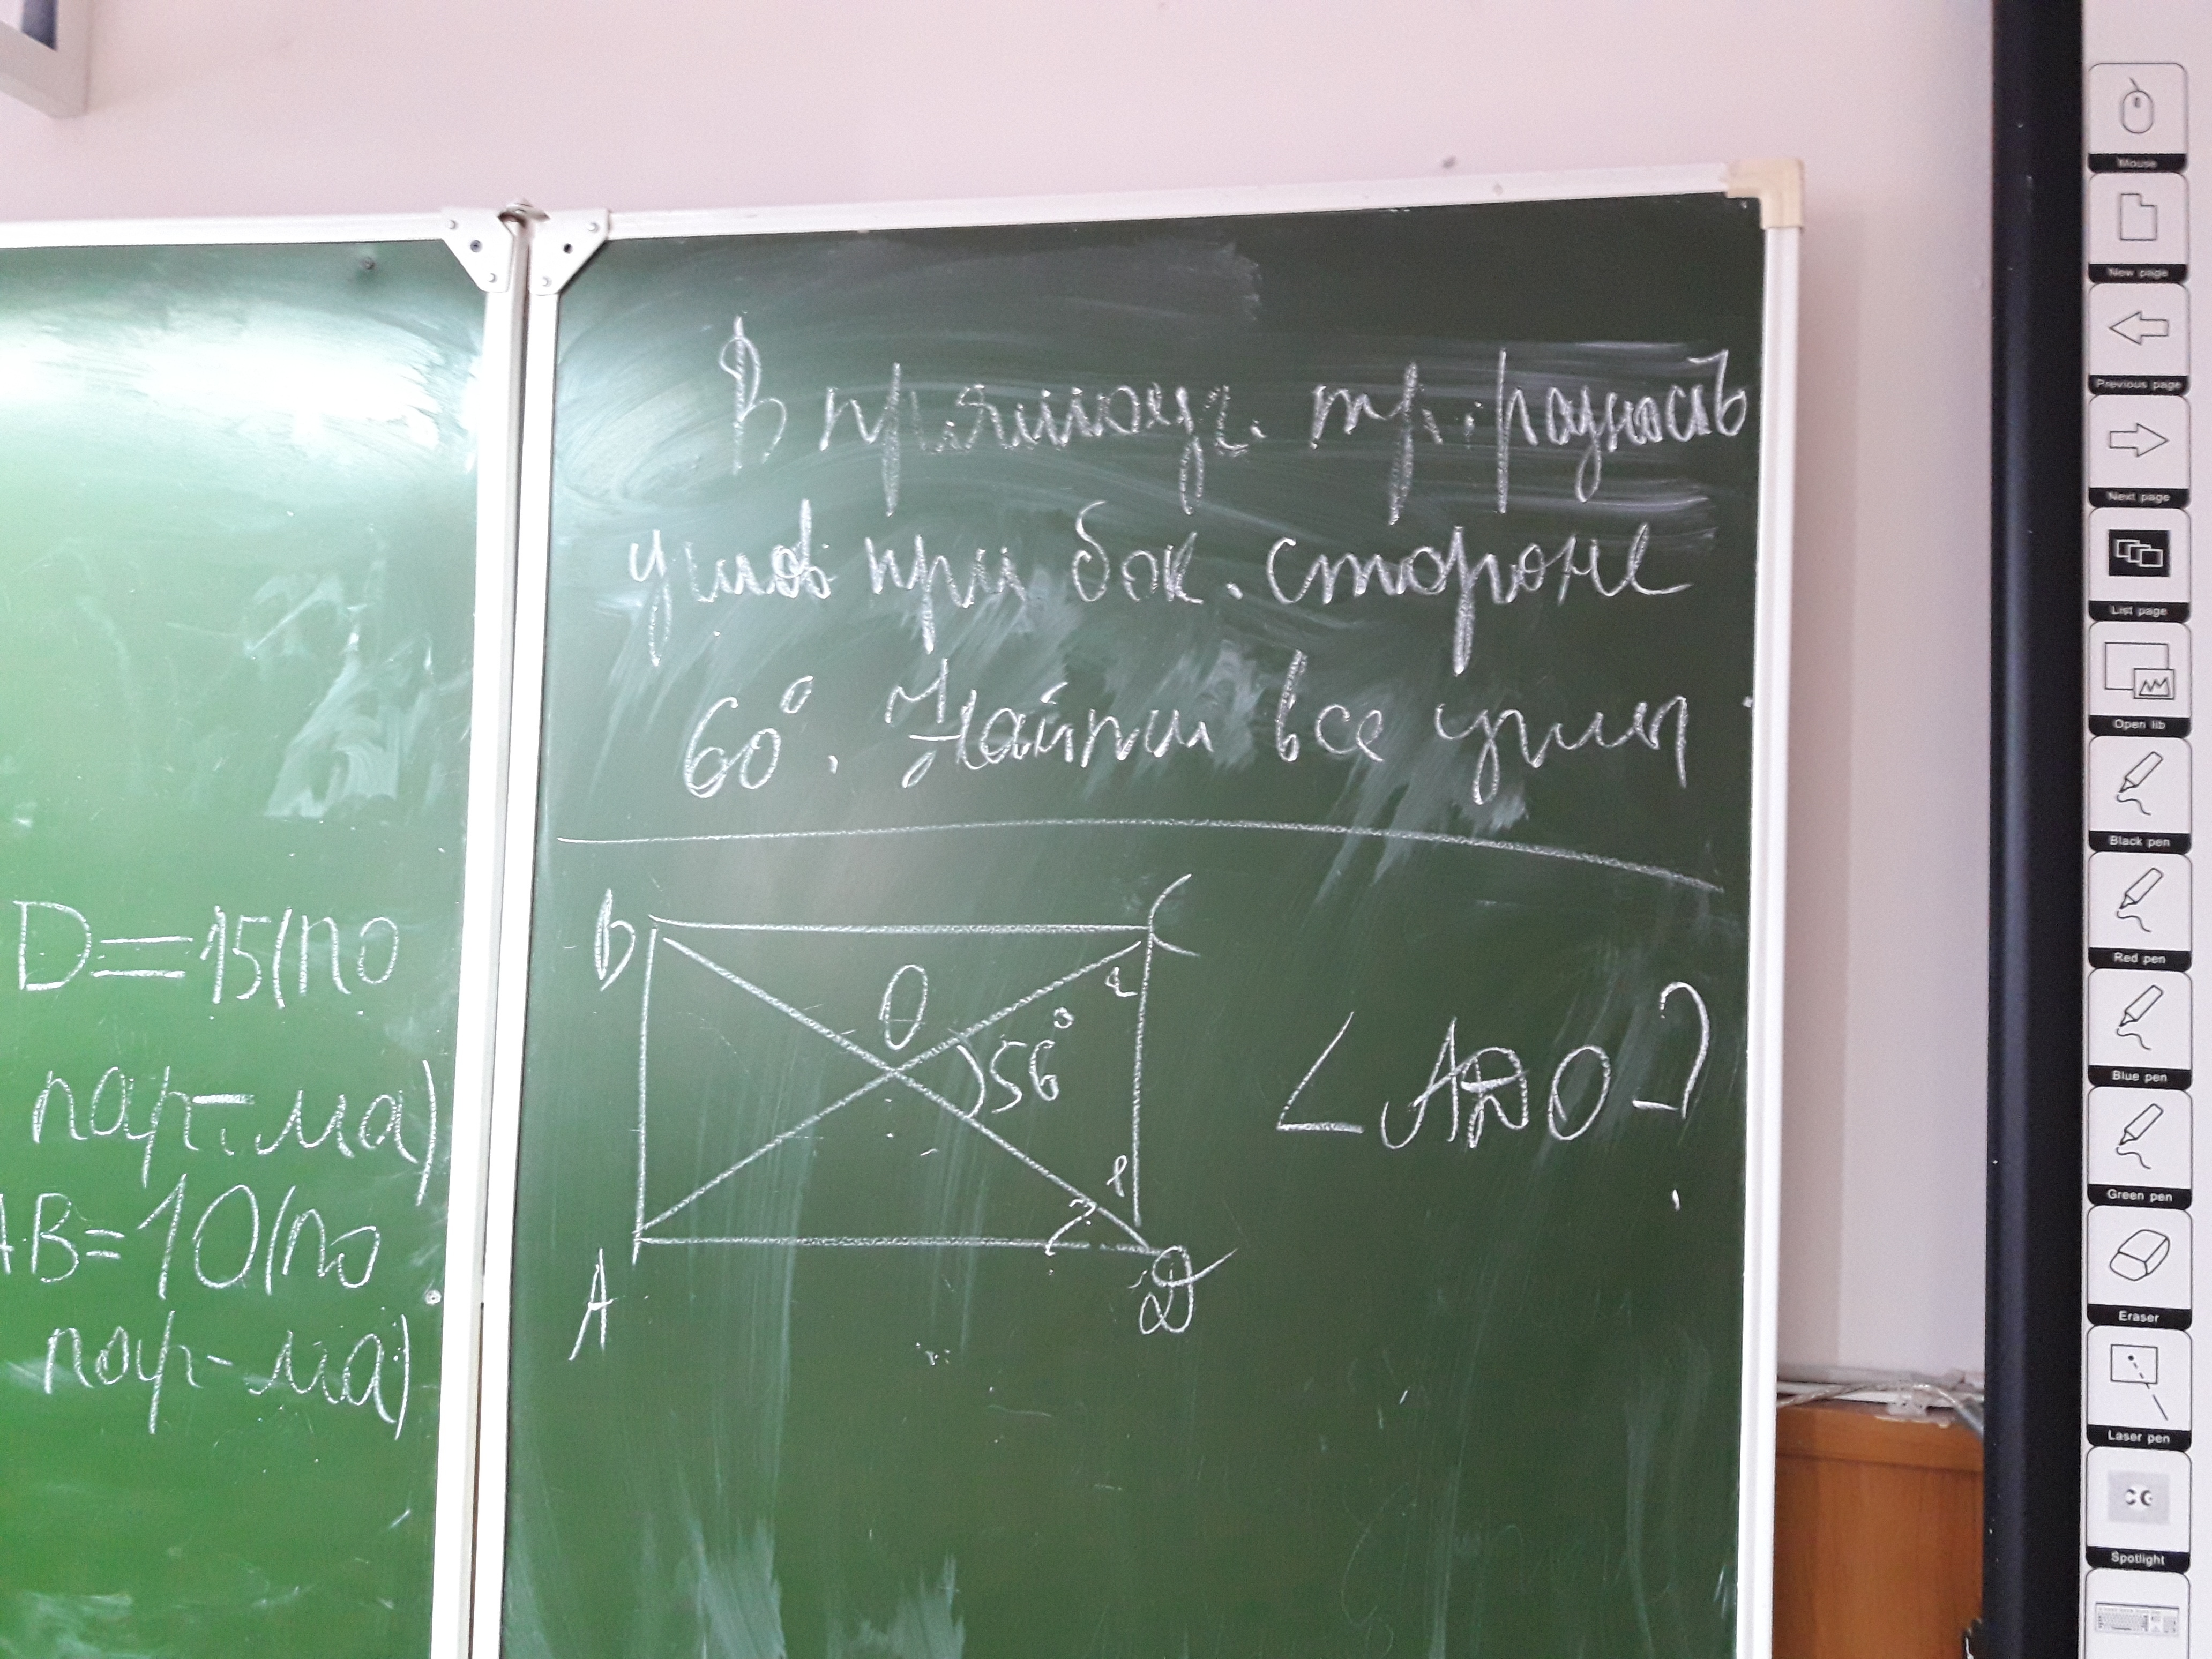 D=15(по
пар-ма)
AB=10(по
пар-ма)
В прямоуг. тр. разность
углов при бок. стороне
60°. Найти все углы
B
C
O
56°
∠ADO-?
?
A
D
Mouse
New page
Previous page
Next page
List page
Open lib
Black pen
Red pen
Blue pen
Green pen
Eraser
Laser pen
Spotlight